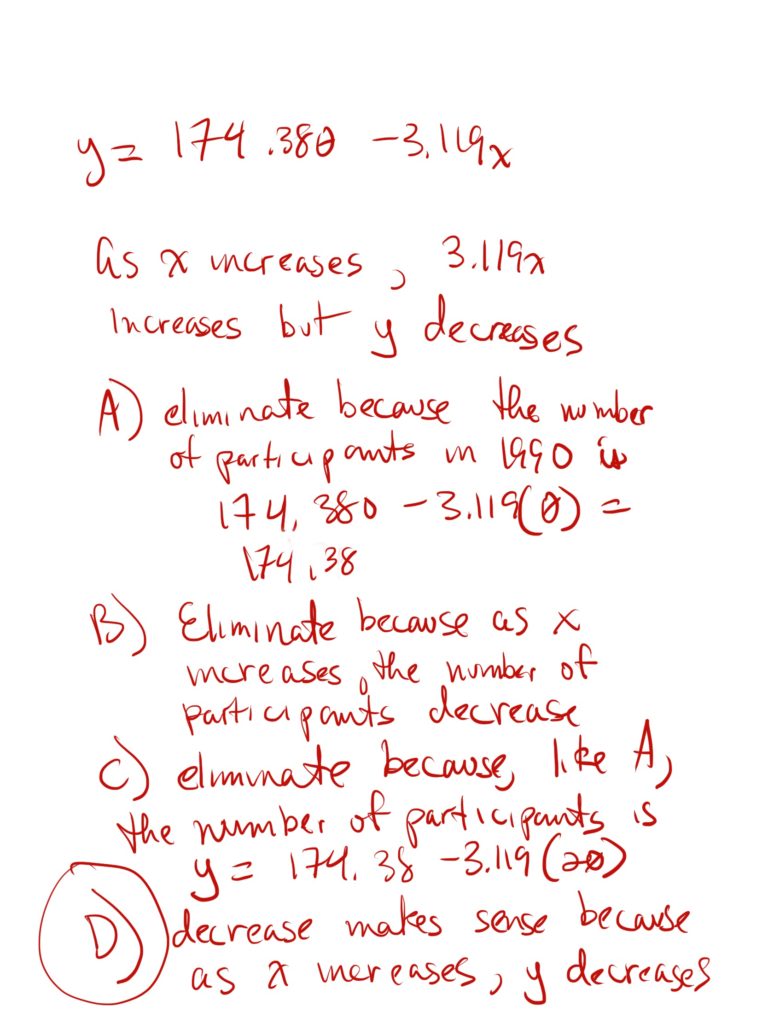 y = 174.380 - 3.119x
As x increases, 3.119x
increases but y decreases
A) eliminate because the number
of participants in 1990 is
174.380 - 3.119(0) =
174.38
B) Eliminate because as x
increases, the number of
participants decrease
C) eliminate because, like A,
the number of participants is
y = 174.38 - 3.119(20)
D) decrease makes sense because
as x increases, y decreases